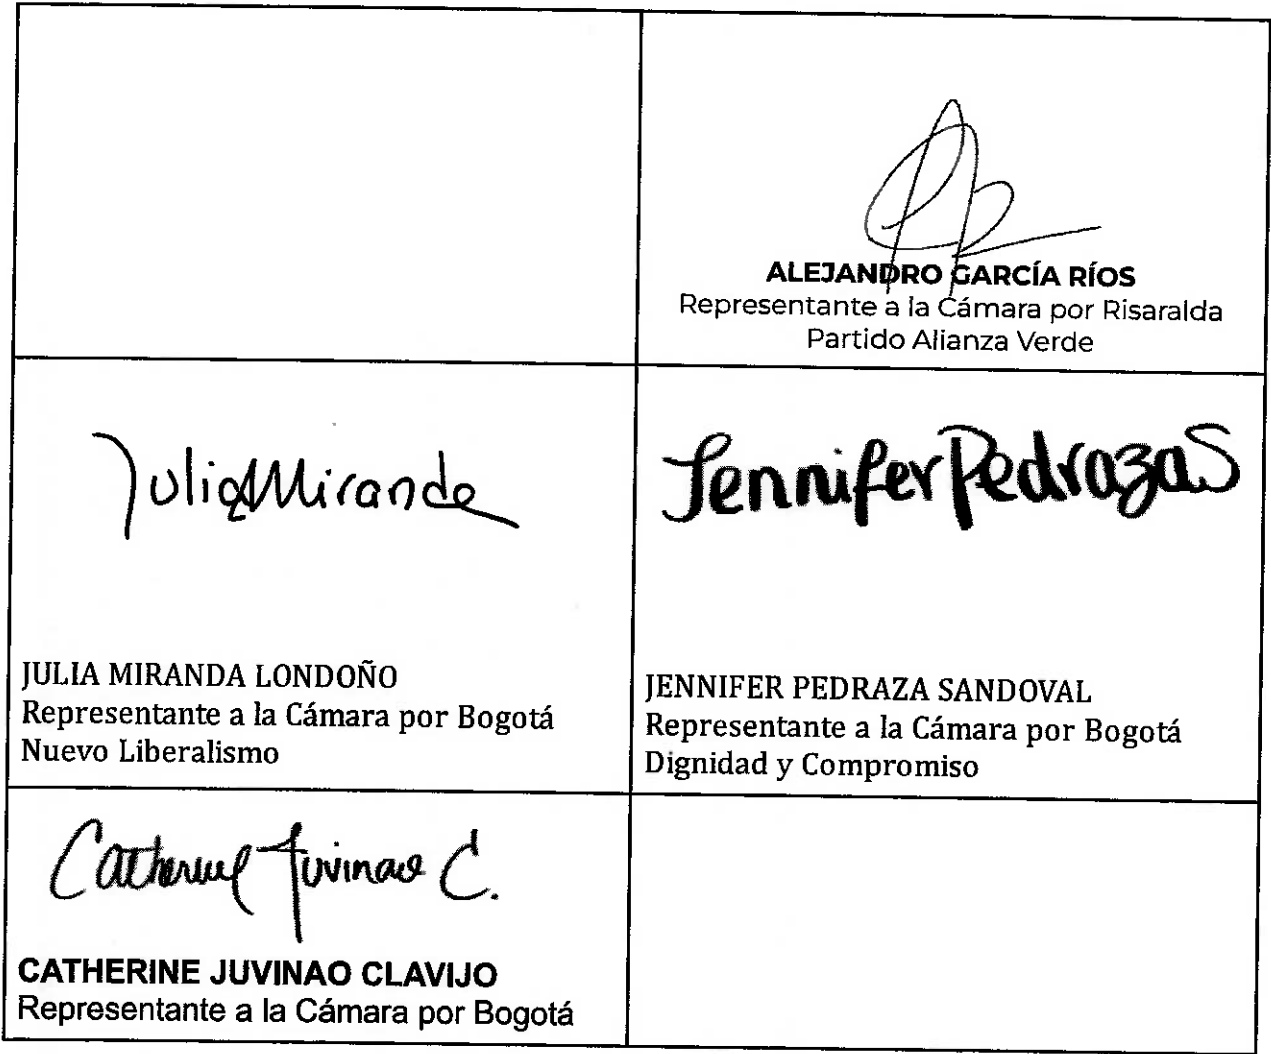 ALEJANDRO GARCÍA RÍOS
Representante a la Cámara por Risaralda
Partido Alianza Verde
Julia Miranda
Jennifer Pedraza S
JULIA MIRANDA LONDOÑO
Representante a la Cámara por Bogotá
Nuevo Liberalismo
JENNIFER PEDRAZA SANDOVAL
Representante a la Cámara por Bogotá
Dignidad y Compromiso
Catherine Juvinao C.
CATHERINE JUVINAO CLAVIJO
Representante a la Cámara por Bogotá